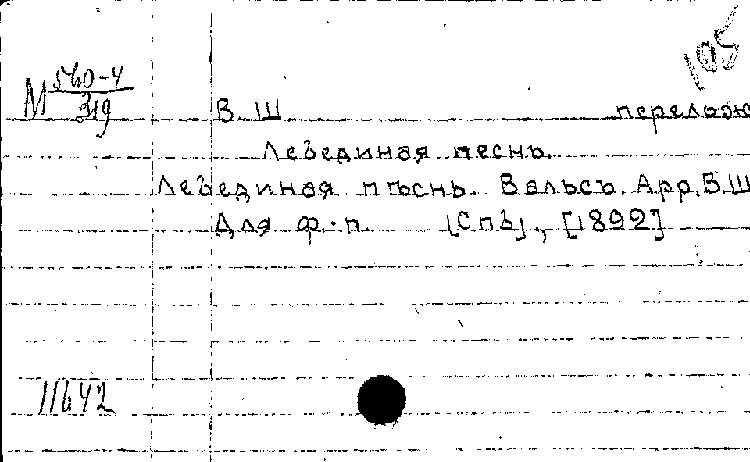 105
М 540-4
319
В. Ш перелож
Лебединая песнь.
Лебединая пѣснь. Вальсъ. Арр. В. Ш
Для ф.-п. [СПб], [1892]
11642